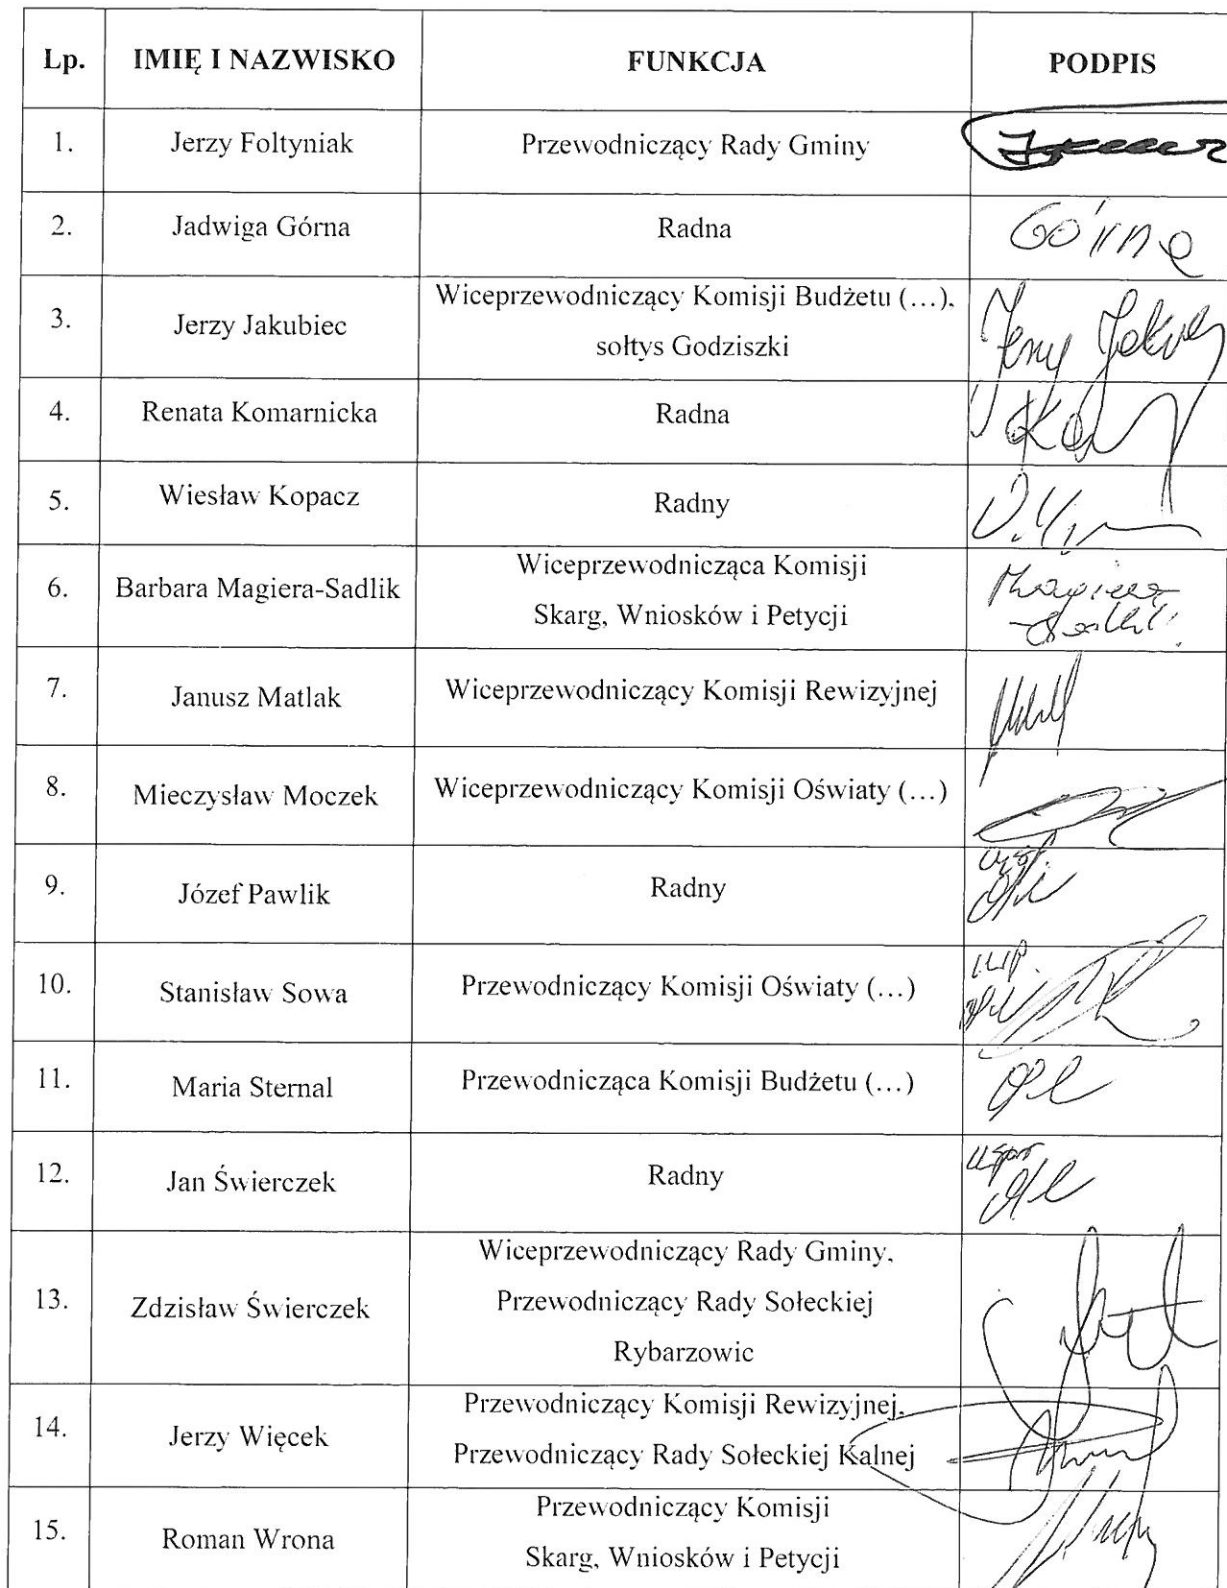 Lp. IMIĘ I NAZWISKO FUNKCJA PODPIS
1. Jerzy Foltyniak Przewodniczący Rady Gminy
2. Jadwiga Górna Radna Górna
3. Jerzy Jakubiec Wiceprzewodniczący Komisji Budżetu (…),
sołtys Godziszki
Jerzy
4. Renata Komarnicka Radna
5. Wiesław Kopacz Radny
6. Barbara Magiera-Sadlik Wiceprzewodnicząca Komisji
Skarg, Wniosków i Petycji
Magiera
-Sadlik
7. Janusz Matlak Wiceprzewodniczący Komisji Rewizyjnej
8. Mieczysław Moczek Wiceprzewodniczący Komisji Oświaty (…)
9. Józef Pawlik Radny
10. Stanisław Sowa Przewodniczący Komisji Oświaty (…)
11. Maria Sternal Przewodnicząca Komisji Budżetu (…)
12. Jan Świerczek Radny
13. Zdzisław Świerczek Wiceprzewodniczący Rady Gminy,
Przewodniczący Rady Sołeckiej
Rybarzowic
14. Jerzy Więcek Przewodniczący Komisji Rewizyjnej,
Przewodniczący Rady Sołeckiej Kalnej
15. Roman Wrona Przewodniczący Komisji
Skarg, Wniosków i Petycji